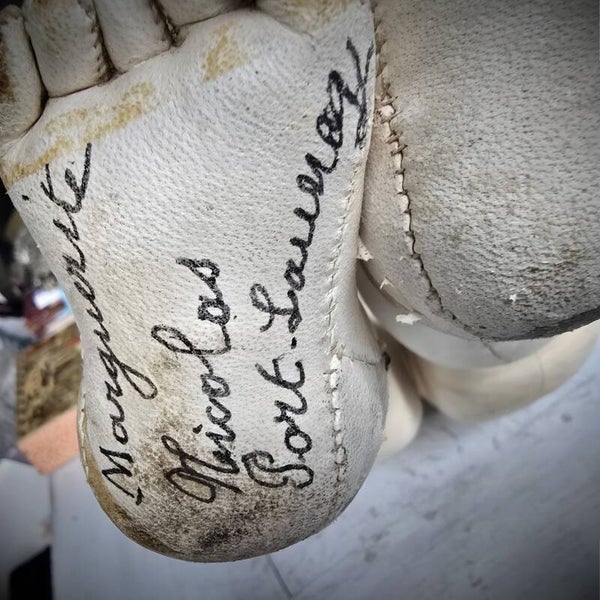 Marguerite
Nicolas
Port-Laveroz